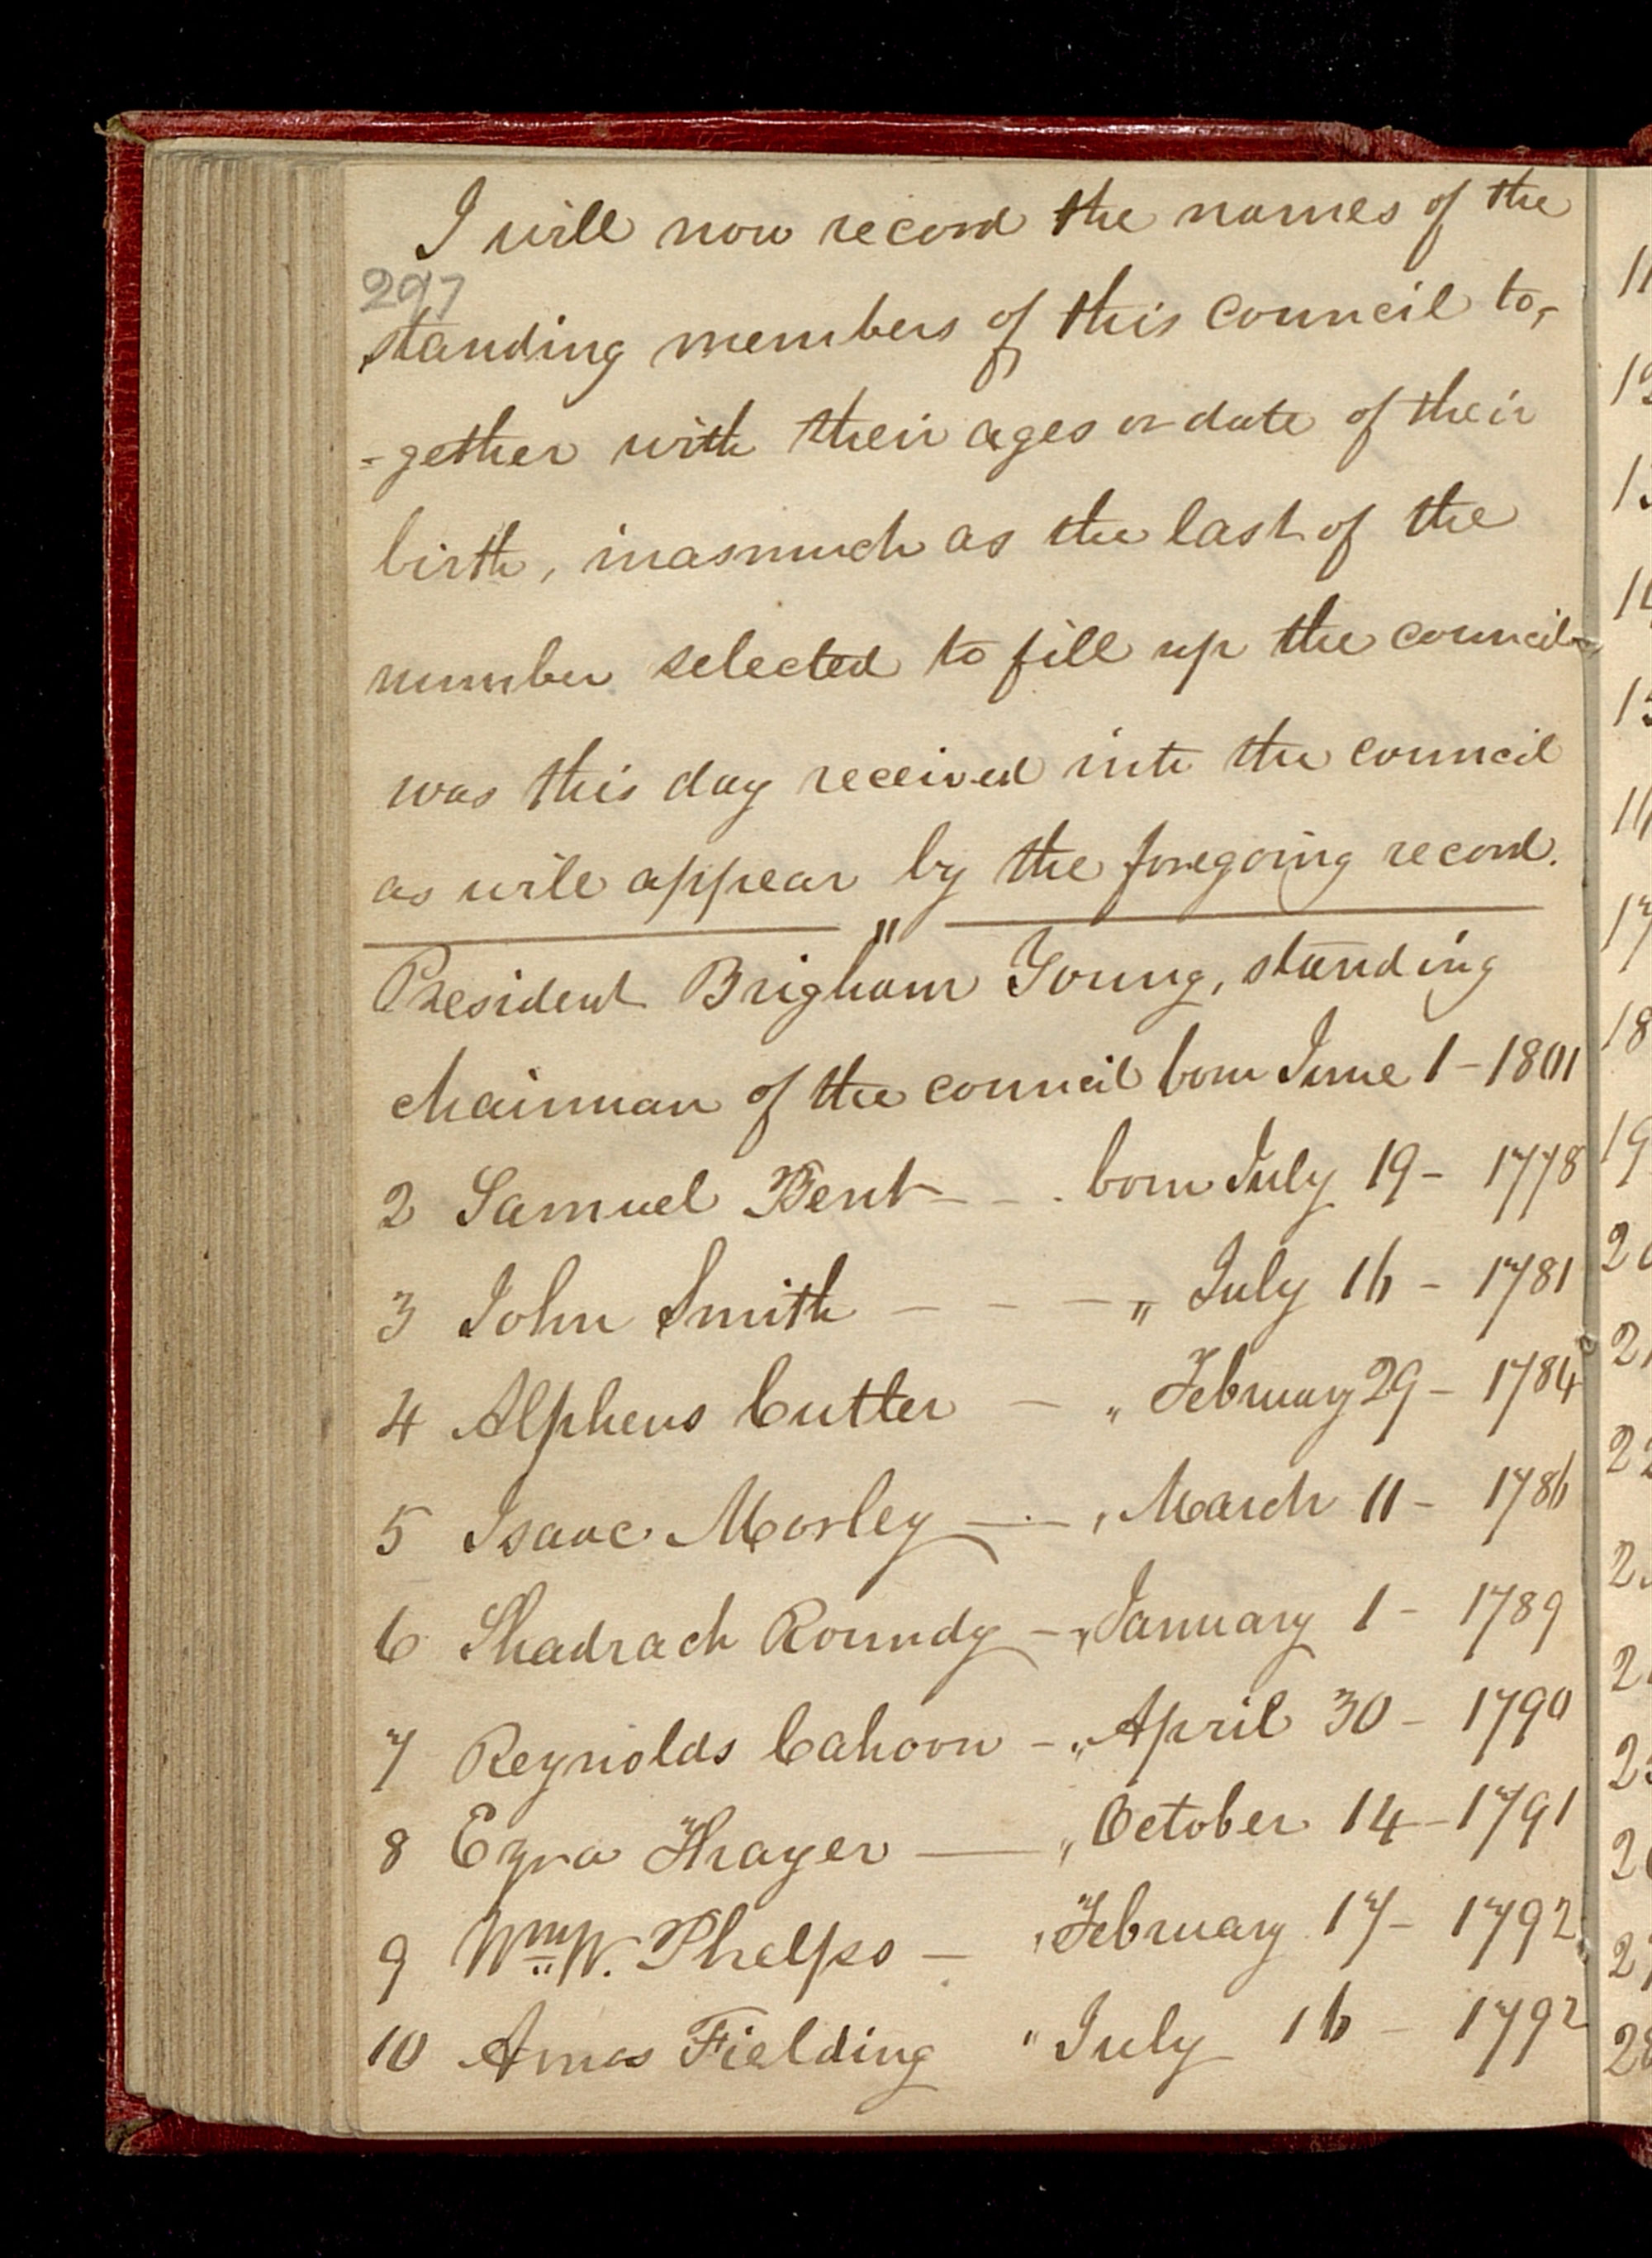 I will now record the names of the
297
standing members of this council to-
-gether with their ages or date of their
birth, inasmuch as the last of the
number selected to fill up the council
was this day received into the council
as will appear by the foregoing record.
"
President Brigham Young, standing
chairman of the council born June 1 - 1801
2 Samuel Bent - - . born July 19 - 1778
3 John Smith - - - " July 16 - 1781
4 Alpheus Cutler - " February 29 - 1784
5 Isaac Morley - . - , March 11 - 1786
6 Shadrach Roundy - " January 1 - 1789
7 Reynolds Cahoon - " April 30 - 1790
8 Ezra Thayer — " October 14 - 1791
9 Wm W. Phelps - " February 17 - 1792
10 Amos Fielding " July 16 - 1792